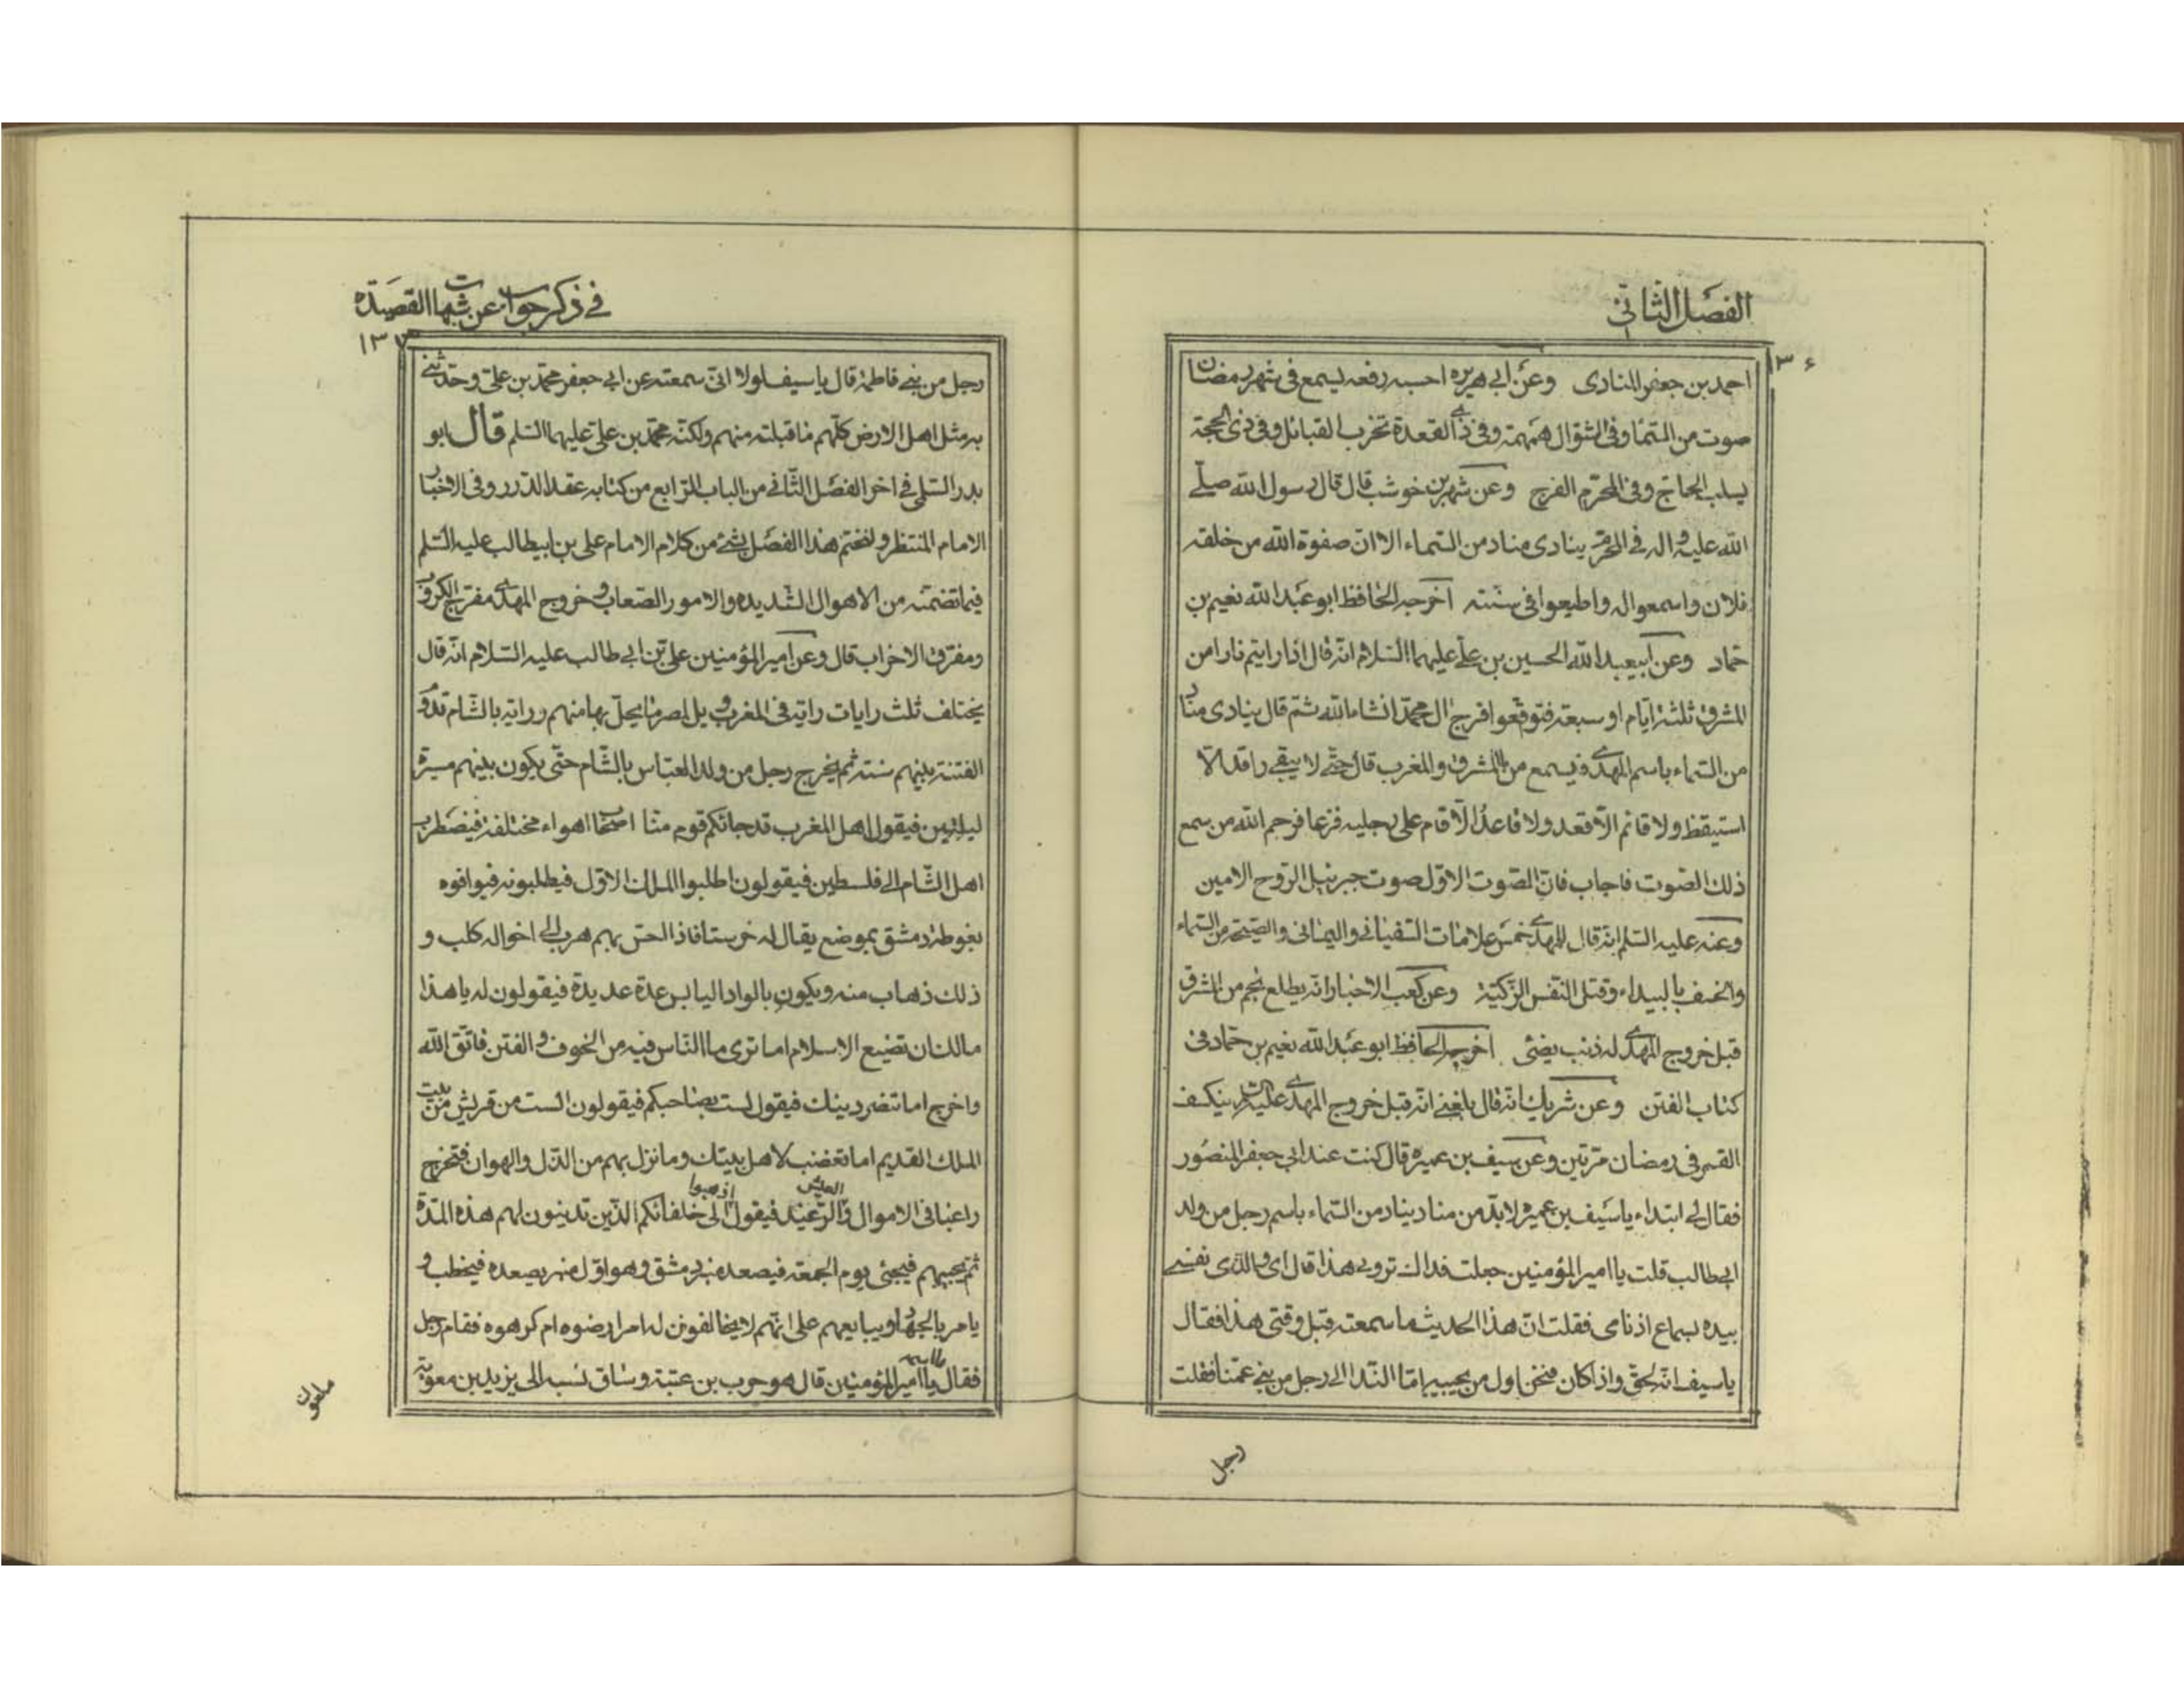 الفصل الثاني
١٣٦
احمد بن جعفر المنادى وعن ابي هريره احسبه رفعه يسمع فى شهر رمضان
صوت من السماء وفى الشوال همهمة وفى ذي القعدة تخرب القبائل وفى ذى الحجة
يسلب الحاج وفى المحرم الفرج وعن شهر بن خوشب قال قال رسول الله صلى
الله عليه واله في المحرم ينادى مناد من السماء الا ان صفوة الله من خلقه
فلان واسمعوا له واطيعوا فى سنته اخرجه الحافظ ابو عبد الله نعيم بن
حماد وعن ابيعبد الله الحسين بن علي عليهما السلام انه قال اذا رايتم نارا من
المشرق ثلثة ايام او سبعة فتوقعوا فرج ال محمد انشاء الله ثم قال ينادى مناد
من السماء باسم المهدي فيسمع من بالمشرق والمغرب قال حتى لا يبقى راقد الا
استيقظ ولا قائم الا قعد ولا قاعد الا قام على رجليه فزعا فرحم الله من سمع
ذلك الصوت فاجاب فان الصوت الاول صوت جبرئيل الروح الامين
وعنه عليه السلم انه قال للمهدي خمس علامات السفياني واليماني والصيحة من السماء
والخسف بالبيداء وقتل النفس الزكية وعن كعب الاحبار انه يطلع نجم من المشرق
قبل خروج المهدي له ذنب يضئى اخرجه الحافظ ابو عبد الله نعيم بن حماد فى
كتاب الفتن وعن شريك انه قال بلغني انه قبل خروج المهدي عليه السلم ينكسف
القمر فى رمضان مرتين وعن سيف بن عميره قال كنت عند ابي جعفر المنصور
فقال لي ابتداء يا سيف بن عميره لا بد من مناد يناد من السماء باسم رجل من ولد
ابي طالب قلت يا امير المؤمنين جعلت فداك تروي هذا قال اى والذى نفسي
بيده بسماع اذنامى فقلت ان هذا الحديث ما سمعته قبل وقتى هذا فقال
يا سيف انه لحق واذا كان فنحن اول من يجيبه اما الندا الى رجل من بني عمنا فقلت
رجل
في ذكر جواب عن شبهات القصيدة
١٣٧
رجل من بني فاطمة قال يا سيف لولا انى سمعته عن ابي جعفر محمد بن على وحدثني
به مثل اهل الارض كلهم ما قبلته منهم ولكنه محمد بن علي عليهما السلم قال ابو
بدر السلمي في اخر الفصل الثاني من الباب الرابع من كتابه عقد الدرر وفى الاخبار
الامام المنتظر ولنختم هذا الفصل بشئ من كلام الامام على بن ابيطالب عليه السلم
فيما تضمنه من الاهوال الشديده والامور الصعاب وخروج المهدي مفرج الكروب
ومفرق الاخراب قال وعن امير المؤمنين على بن ابي طالب عليه السلام انه قال
يختلف ثلث رايات راية فى المغرب ويل لمصر ما يحل بها منهم وراية بالشام تدوم
الفتنة بينهم سنة ثم يخرج رجل من ولد العباس بالشام حتى يكون بينهم مسيرة
ليلتين فيقول اهل المغرب قد جائكم قوم منا اصحاب اهواء مختلفة فيضطرب
اهل الشام الى فلسطين فيقولون اطلبوا الملك الاول فيطلبونه فيوافوه
بغوطة دمشق بموضع يقال له خرستا فاذا الحس بهم هرب الى اخواله كلب و
ذلك ذهاب منه ويكون بالواد اليابس عدة عديدة فيقولون له يا هذا
مالك ان تضيع الاسلام اما ترى ما الناس فيه من الخوف والفتن فاتق الله
واخرج اما تنصر دينك فيقول لست بصاحبكم فيقولون الست من قريش من بيت
الملك القديم اما تغضب لاهل بيتك وما نزل بهم من الذل والهوان فتخرج
راغبا فى الاموال والعيش الرغيد فيقول اذهبوا الى خلفائكم الذين تدينون لهم هذه المدة
ثم يجيبهم فيجئى يوم الجمعة فيصعد منبر دمشق وهو اول منبر يصعده فيخطب و
يامر بالجهاد ويبايعهم على انهم لا يخالفون له امرا رضوه ام كرهوه فقام رجل
فقال ما اسمه يا امير المؤمنين قال هو حرب بن عتبة وساق نسبه الى يزيد بن معوية
ملعون